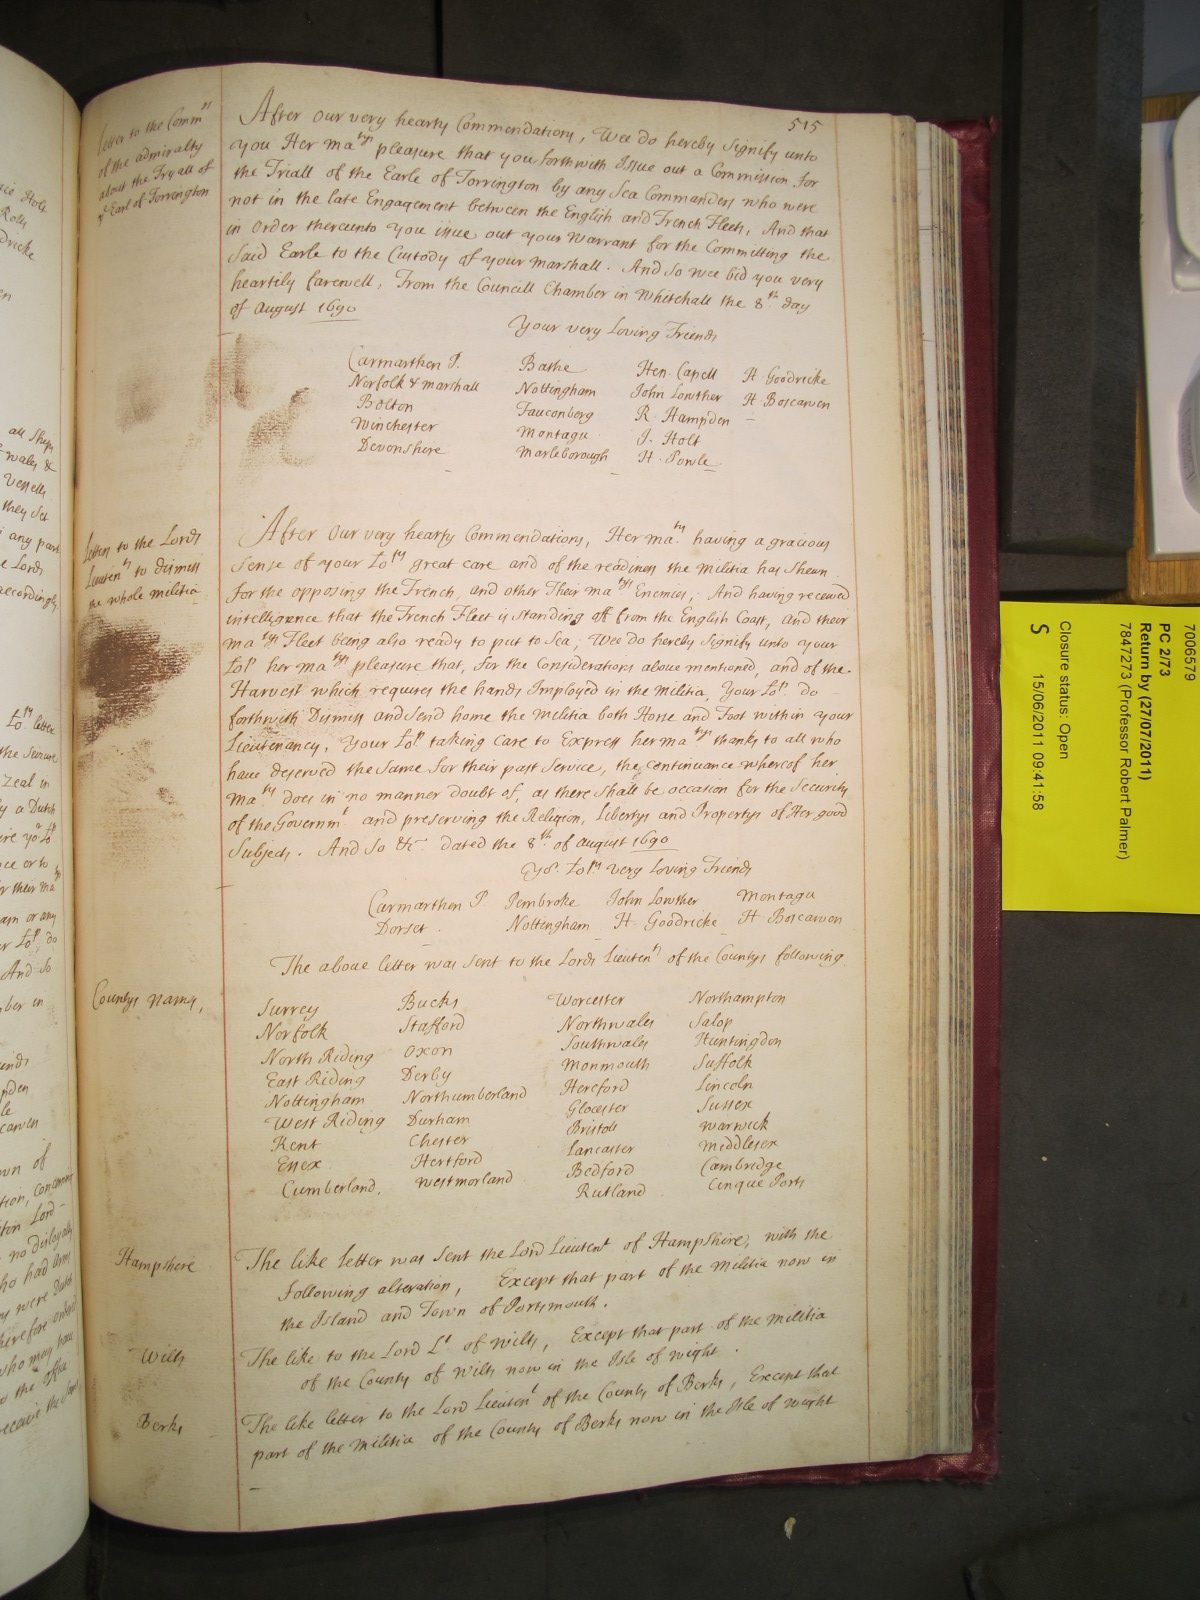 515
Letter to the Comm^rs
of the admiralty
about the Tryall of
y^e Earl of Torrington
After our very hearty Commendations, Wee do hereby Signify unto
you Her Ma^tys pleasure that you forthwith Issue out a Commission for
the Triall of the Earle of Torrington by any Sea Commanders who were
not in the late Engagement between the English and French Fleets, And that
in Order thereunto you issue out your Warrant for the Committing the
said Earle to the Custody of your Marshall. And so wee bid you very
heartily farewell, From the Councill Chamber in Whitehall the 8^th day
of August 1690
Your very Loving Friends
Carmarthen P. Bathe Hen. Capell H. Goodricke
Norfolk & Marshall Nottingham John Lowther H. Boscawen
Bolton Fauconberg R. Hampden
Winchester Montagu J. Holt
Devonshire Marleborough H. Powle
Letter to the Lords
Lieuten^ts to dismiss
the whole militia
After our very hearty Commendations, Her Ma^ty having a gracious
sense of your Lo^ps great care and of the readiness the Militia has shewn
for the opposing the French, and other Their Ma^tys Enemies; And having received
intelligence that the French Fleet is standing off from the English Coast, and their
Ma^tys Fleet being also ready to put to Sea; Wee do hereby Signify unto your
Lo^p her Ma^tys pleasure that, for the Considerations above mentioned, and of the
Harvest which requires the hands Imployed in the Militia, Your Lo^p do
forthwith Dismiss and send home the Militia both Horse and Foot within your
Lieutenancy, Your Lo^p taking care to Express her Ma^tys thanks to all who
have deserved the same for their past Service, the continuance whereof her
Ma^ty does in no manner doubt of, as there shall be occasion for the Security
of the Governm^t and preserving the Religion, Libertys and Propertys of Her good
Subjects. And so &c dated the 8^th of August 1690
Yo^r Lo^ps very Loving Friends
Carmarthen P Pembroke John Lowther Montagu
Dorset Nottingham H. Goodricke H Boscawen
The above letter was sent to the Lords Lieuten^ts of the Countys following
Countys names,
Surrey Bucks Worcester Northampton
Norfolk Stafford Northwales Salop
North Riding Oxon Southwales Huntingdon
East Riding Derby Monmouth Suffolk
Nottingham Northumberland Hereford Lincoln
West Riding Durham Glocester Sussex
Kent Chester Bristoll Warwick
Essex Hertford Lancaster Middlesex
Cumberland, Westmorland Bedford Cambridge
Rutland Cinque Ports
Hampshire
The like letter was sent the Lord Lieutent of Hampshire, with the
following alteration, Except that part of the Militia now in
the Island and Town of Portsmouth.
Wilts
The like to the Lord L^t of Wilts, Except that part of the Militia
of the County of Wilts now in the Isle of Wight.
Berks
The like letter to the Lord Lieuten^t of the County of Berks, Except that
part of the Militia of the County of Berks now in the Isle of Wight
7006579
PC 2/73
Return by (27/07/2011)
7847273 (Professor Robert Palmer)
Closure status: Open
S 15/06/2011 09:41:58